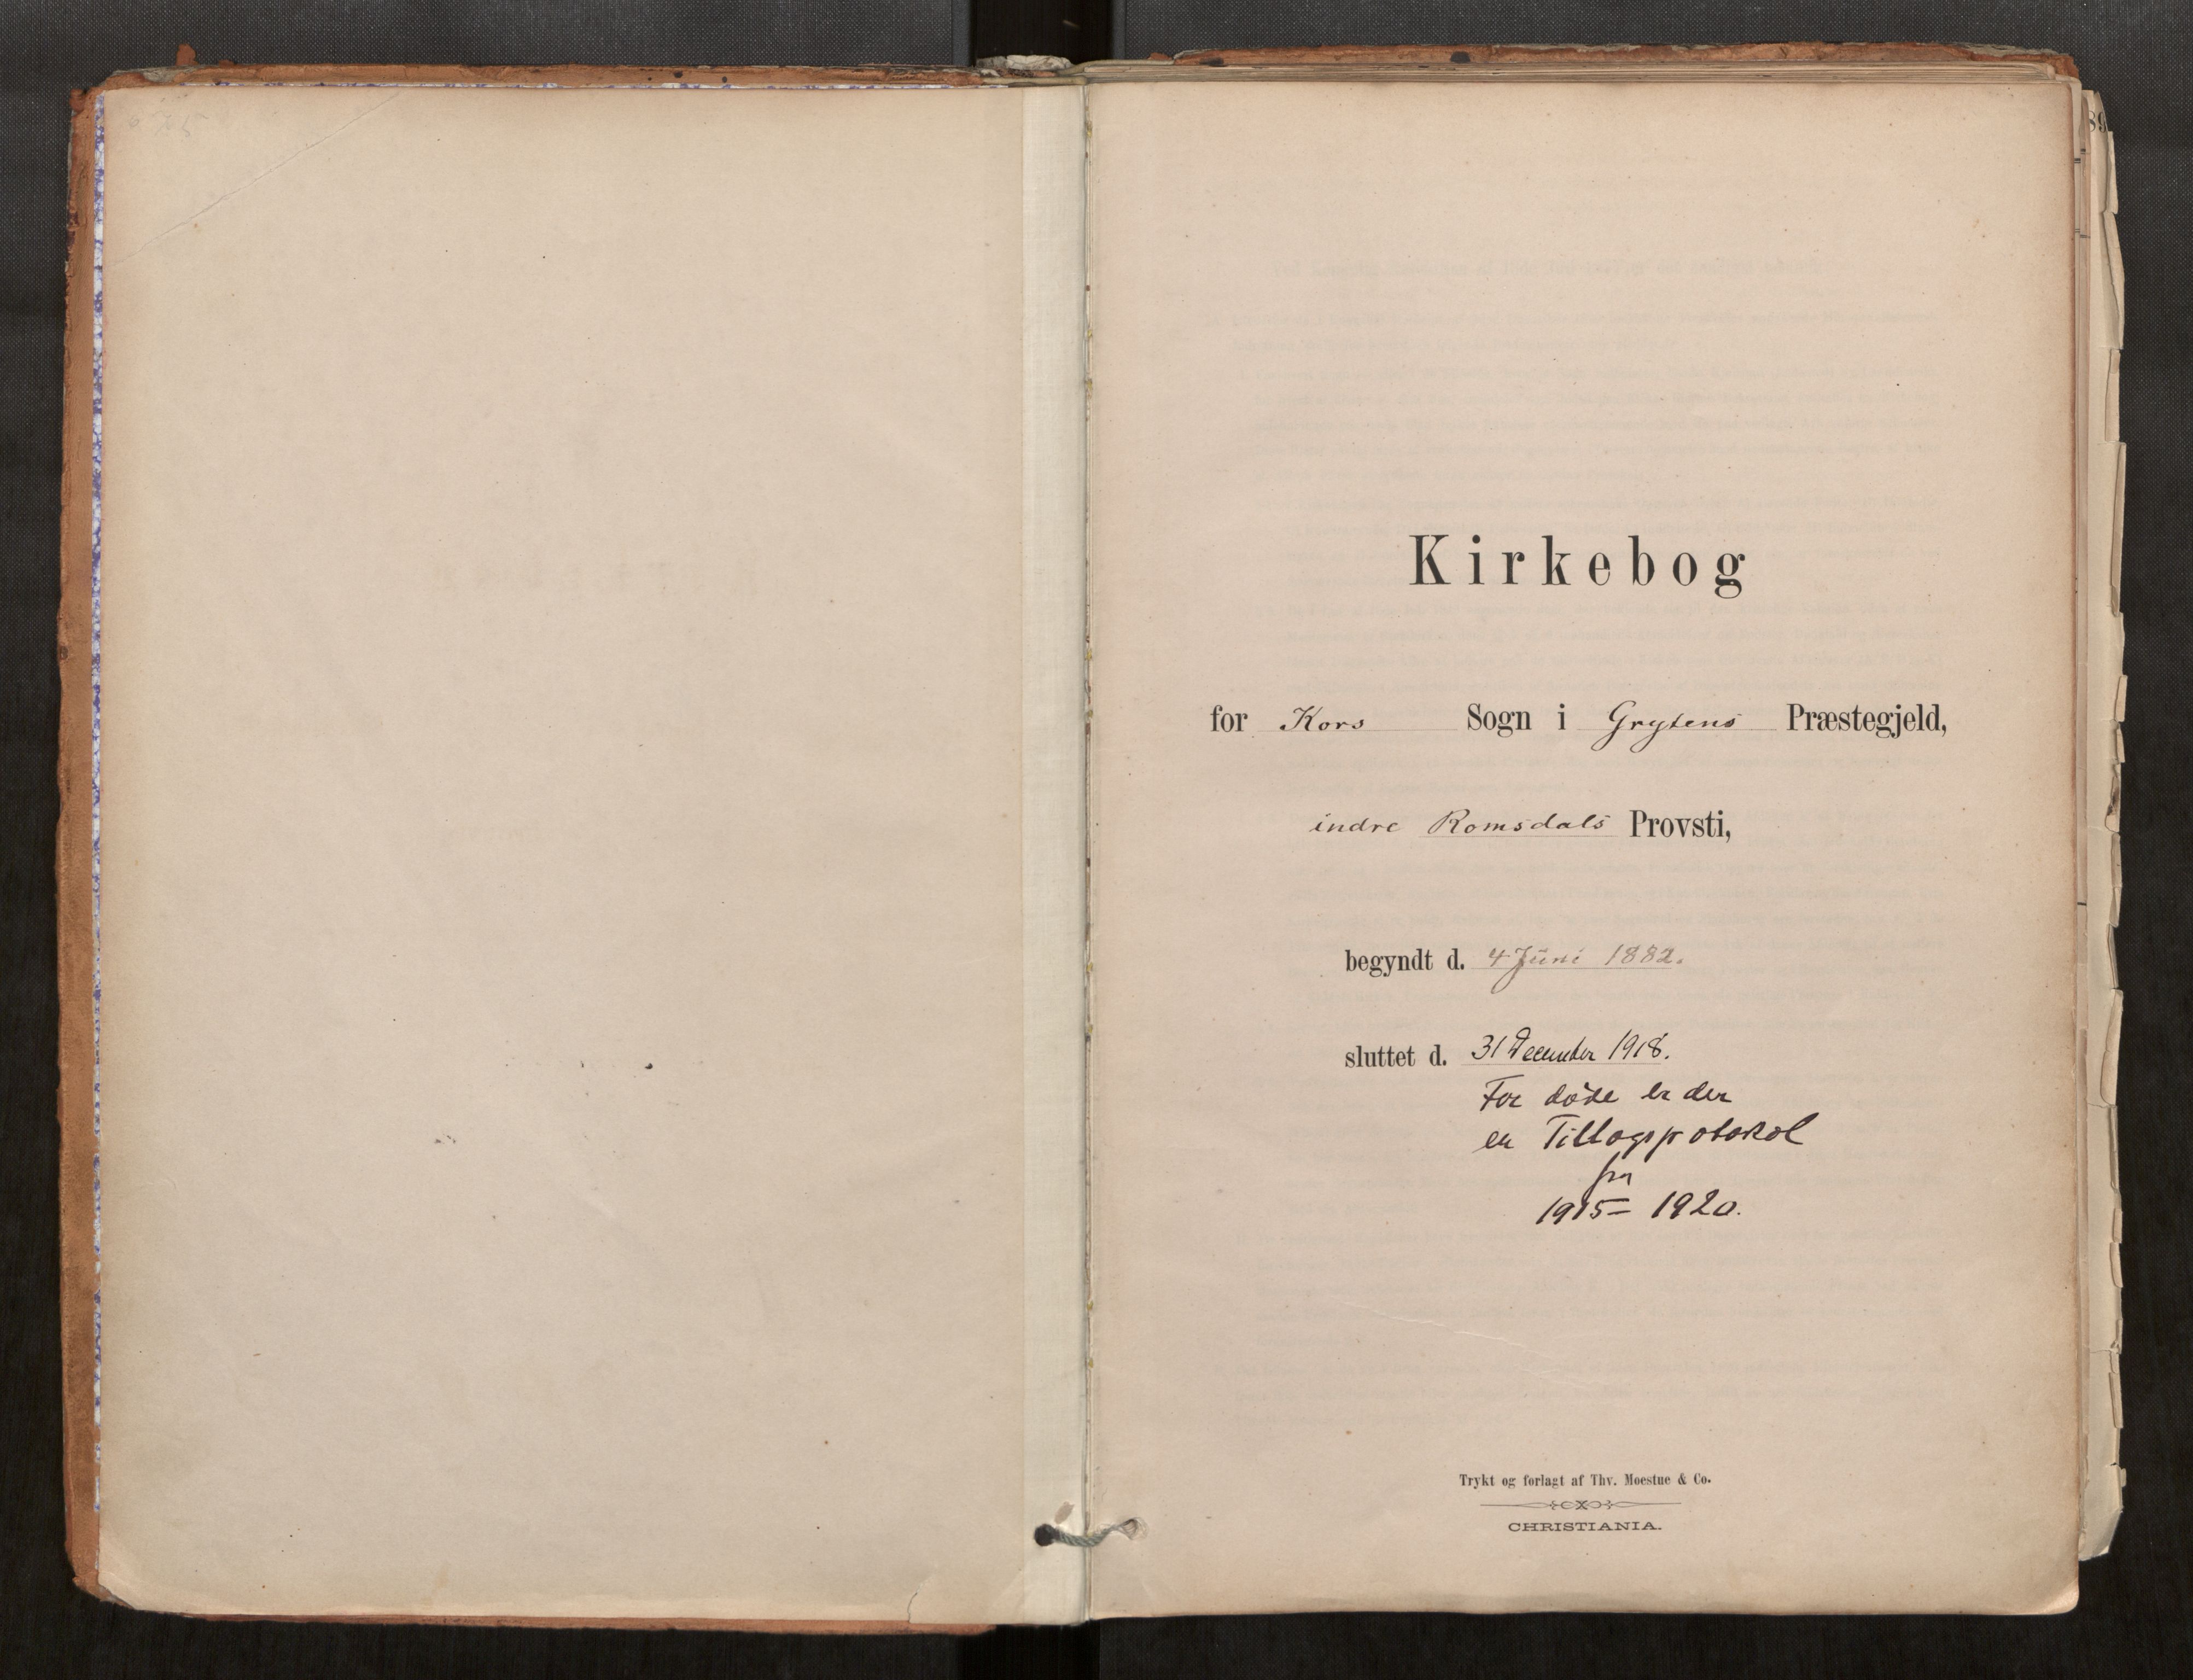 Kirkebog
for Kors Sogn i Grytens Præstegjeld,
indre Romsdals Provsti,
begyndt d. 4 Juni 1882.
sluttet d. 31 December 1918.
For døde er der
en Tillægsprotokol
fra
1915 - 1920.
Trykt og forlagt af Thv. Moestue & Co.
CHRISTIANIA.
89